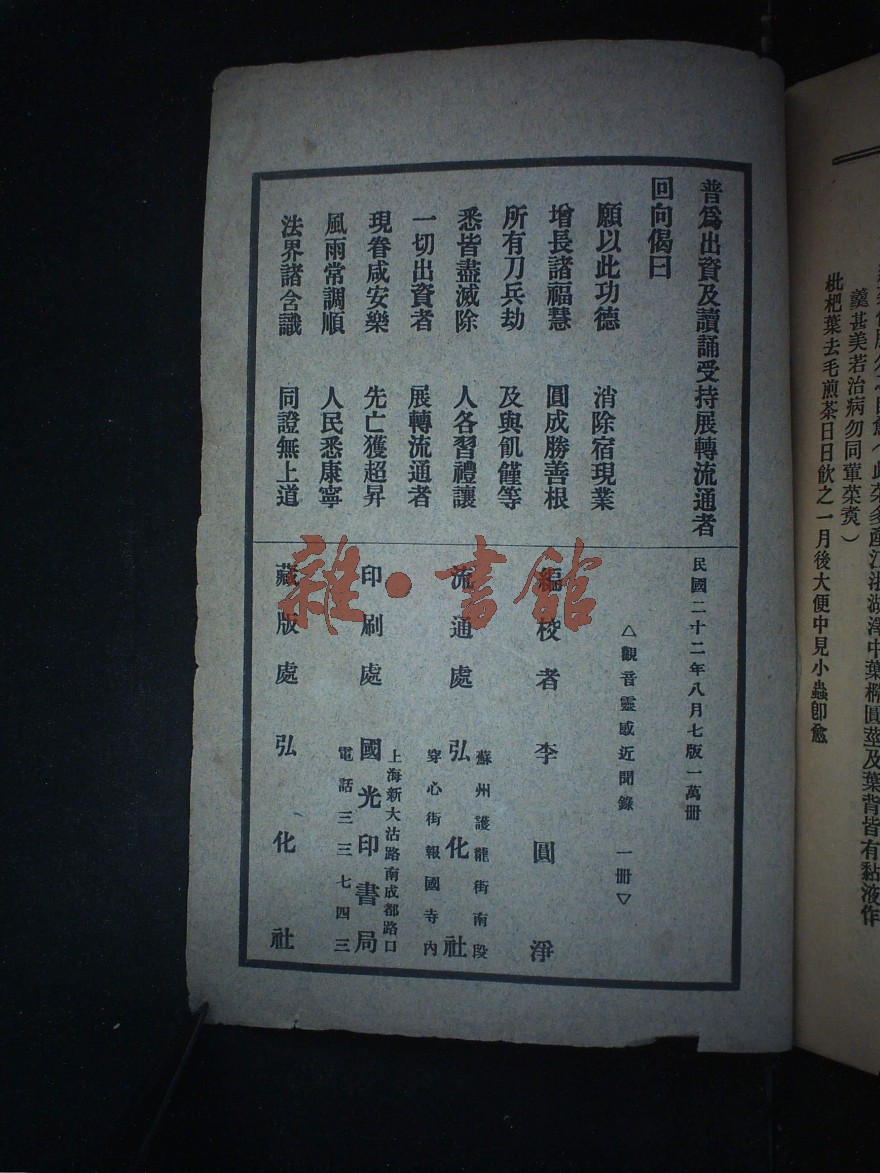 羹甚美若治病勿同葷菜煑）
枇杷葉去毛煎茶日日飲之一月後大便中見小蟲卽愈
普爲出資及讀誦受持展轉流通者
回向偈曰
願以此功德　消除宿現業
增長諸福慧　圓成勝善根
所有刀兵劫　及與飢饉等
悉皆盡滅除　人各習禮讓
一切出資者　展轉流通者
現眷咸安樂　先亡獲超昇
風雨常調順　人民悉康寧
法界諸含識　同證無上道
民國二十二年八月七版一萬冊
△觀音靈感近聞錄　一冊▽
編校者　李圓淨
流通處　弘化社
蘇州護龍街南段
穿心街報國寺內
印刷處　國光印書局
上海新大沽路南成都路口
電話三三七四三
藏版處　弘化社
雜·書館